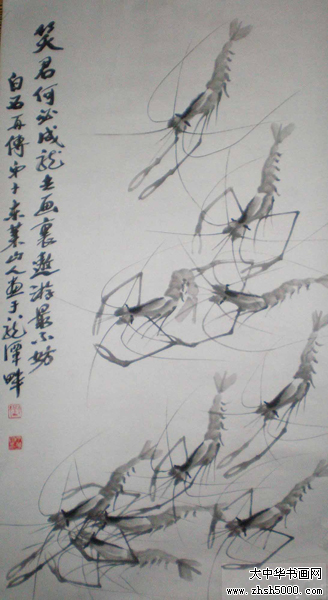 笑君何必成龍去画裏遨游最不妨
白石再傳弟子东莱山人画于龍潭畔
大中华书画网
www.zhsh5000.com